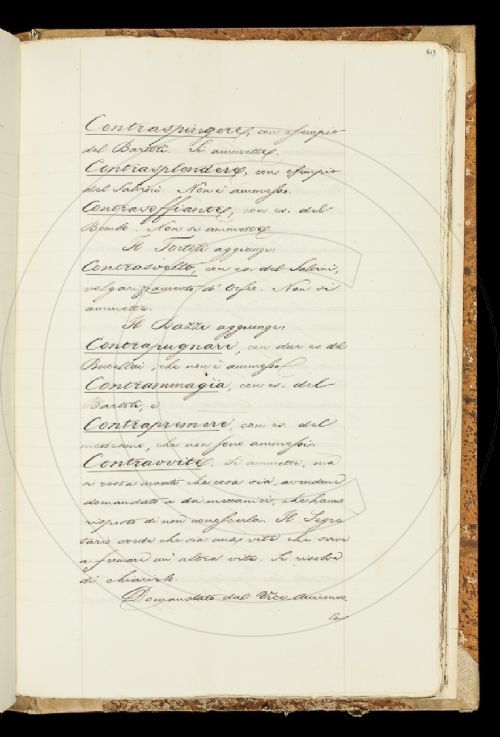 Contraspingere, con esempio
del Bartoli. Si ammette.
Contrasplendere, con esempio
del Salvini. Non è ammesso.
Contrasoffiante, con es. del
Bembo. Non si ammette.
Il Tortoli aggiunge:
Contrasvolto, con es. del Salvini,
volgarizzamento d'Orfeo. Non si
ammette.
Il Dazzi aggiunge:
Contrapugnare, con due es. del
Rucellai, che non è ammesso
Contrammagia, con es. del
Bartoli, e
Contrapremere, con es. del
medesimo, che non sono ammessi.
Contravvite. Si ammette, ma
si resta incerti che cosa sia, avendone
domandato a dei meccanici, che hanno
risposto di non conoscerla. Il Segre
tario crede che sia una vite che serve
a fermare un'altra vite. Si risolve
di chiarirlo.
Domandato dal Vice